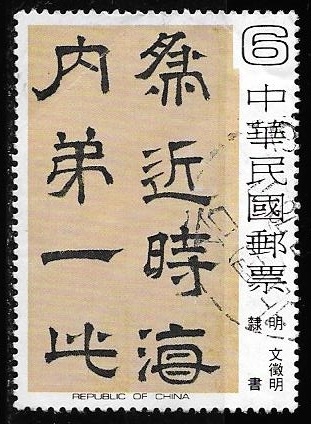 6
中華民國郵票
為近時海
內弟一此
明 文徵明
隸書
REPUBLIC OF CHINA